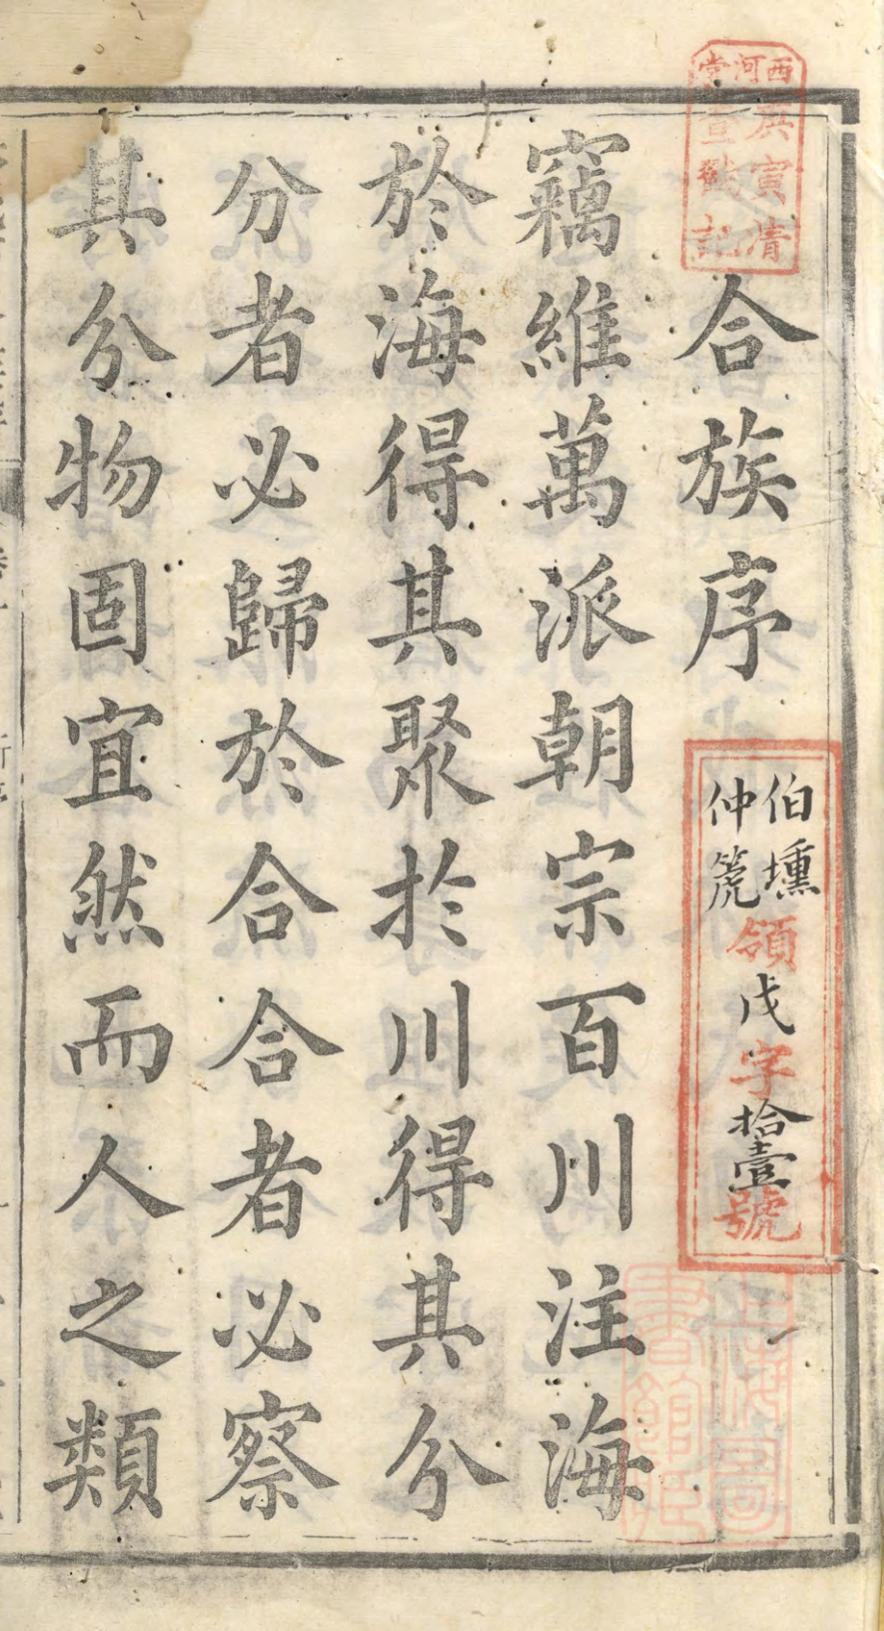 合族序
伯壎
仲篪
領戊字拾壹號
竊維萬派朝宗百川注海
於海得其聚於川得其分
分者必歸於合合者必察
其分物固宜然而人之類
西河
寅清
堂
記
上海圖
書館藏